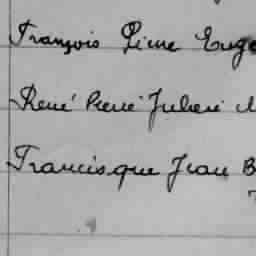 François Pierre Euge
René Pierre Julien M
Francisque Jean B